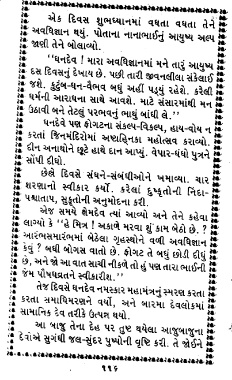 એક દિવસ શુભધ્યાનમાં વધતા વધતા તેને
અવધિજ્ઞાન થયું. પોતાના નાનાભાઈનું આયુષ્ય અલ્પ
જાણી તેને બોલાવ્યો.
“ધનદેવ ! મારા અવધિજ્ઞાનમાં મને તારું આયુષ્ય
દસ દિવસનું દેખાય છે. પછી તારી જીવનલીલા સંકેલાઈ
જશે. કુટુંબ-ધન-વૈભવ બધું અહીં પડ્યું રહેશે. કરેલી
ધર્મની આરાધના સાથે આવશે. માટે સંસારમાંથી મન
ઉઠાવી બને તેટલું પરભવનું ભાથું બાંધી લે.”
ધનદેવે પણ ફોગટના સંકલ્પ-વિકલ્પ, હાય-વોય ન
કરતાં જિનમંદિરોમાં અષ્ટાહ્નિકા મહોત્સવ કરાવ્યો.
દીન અનાથોને છૂટે હાથે દાન આપ્યું. વેપાર-ધંધો પુત્રને
સોંપી દીધો.
છેલ્લે દિવસે સ્વજને-સંબંધીઓને ખમાવ્યા. ચાર
શરણાનો સ્વીકાર કર્યો. કરેલાં દુષ્કૃતોની નિંદા-
પશ્ચાતાપ, સુકૃતોની અનુમોદના કરી.
એજ સમયે ક્ષેમદેવ ત્યાં આવ્યો અને તેને કહેવા
લાગ્યો કે “હે મિત્ર ! અકાળે મરવા શું કામ બેઠો છે. ?
આરંભસમારંભમાં બેઠેલા ગૃહસ્થોને વળી અવધિજ્ઞાન
કેવું ? બધી બોગસ વાતો છે. ફોગટ તે બધું છોડી દીધું
છે, અને જો આ વાત સાચી નીકળે તો હું પણ તારા ભાઈની
જેમ પૌષધવ્રતને સ્વીકારીશ.”
તેજ દિવસે ધનદેવ નમસ્કાર મહામંત્રનું સ્મરણ કરતા
કરતા સમાધિમરણને વર્યો, અને બારમા દેવલોકમાં
સામાનિક દેવ તરીકે ઉત્પન્ન થયો.
આ બાજુ તેના દેહ પર તુષ્ટ થયેલા આજુબાજુના
દેવોએ સુગંધી જલ-સુંદર પુષ્પોની વૃષ્ટિ કરી. તે જોઈને
૧૧૬